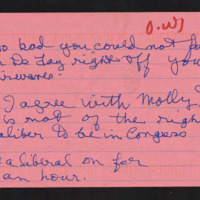 O.W)
oo bad you could not
De Lay right off you
airwave.
I agree with Molly
is not of the righ
aliber to be in Congress
a liberal on for
an hour.